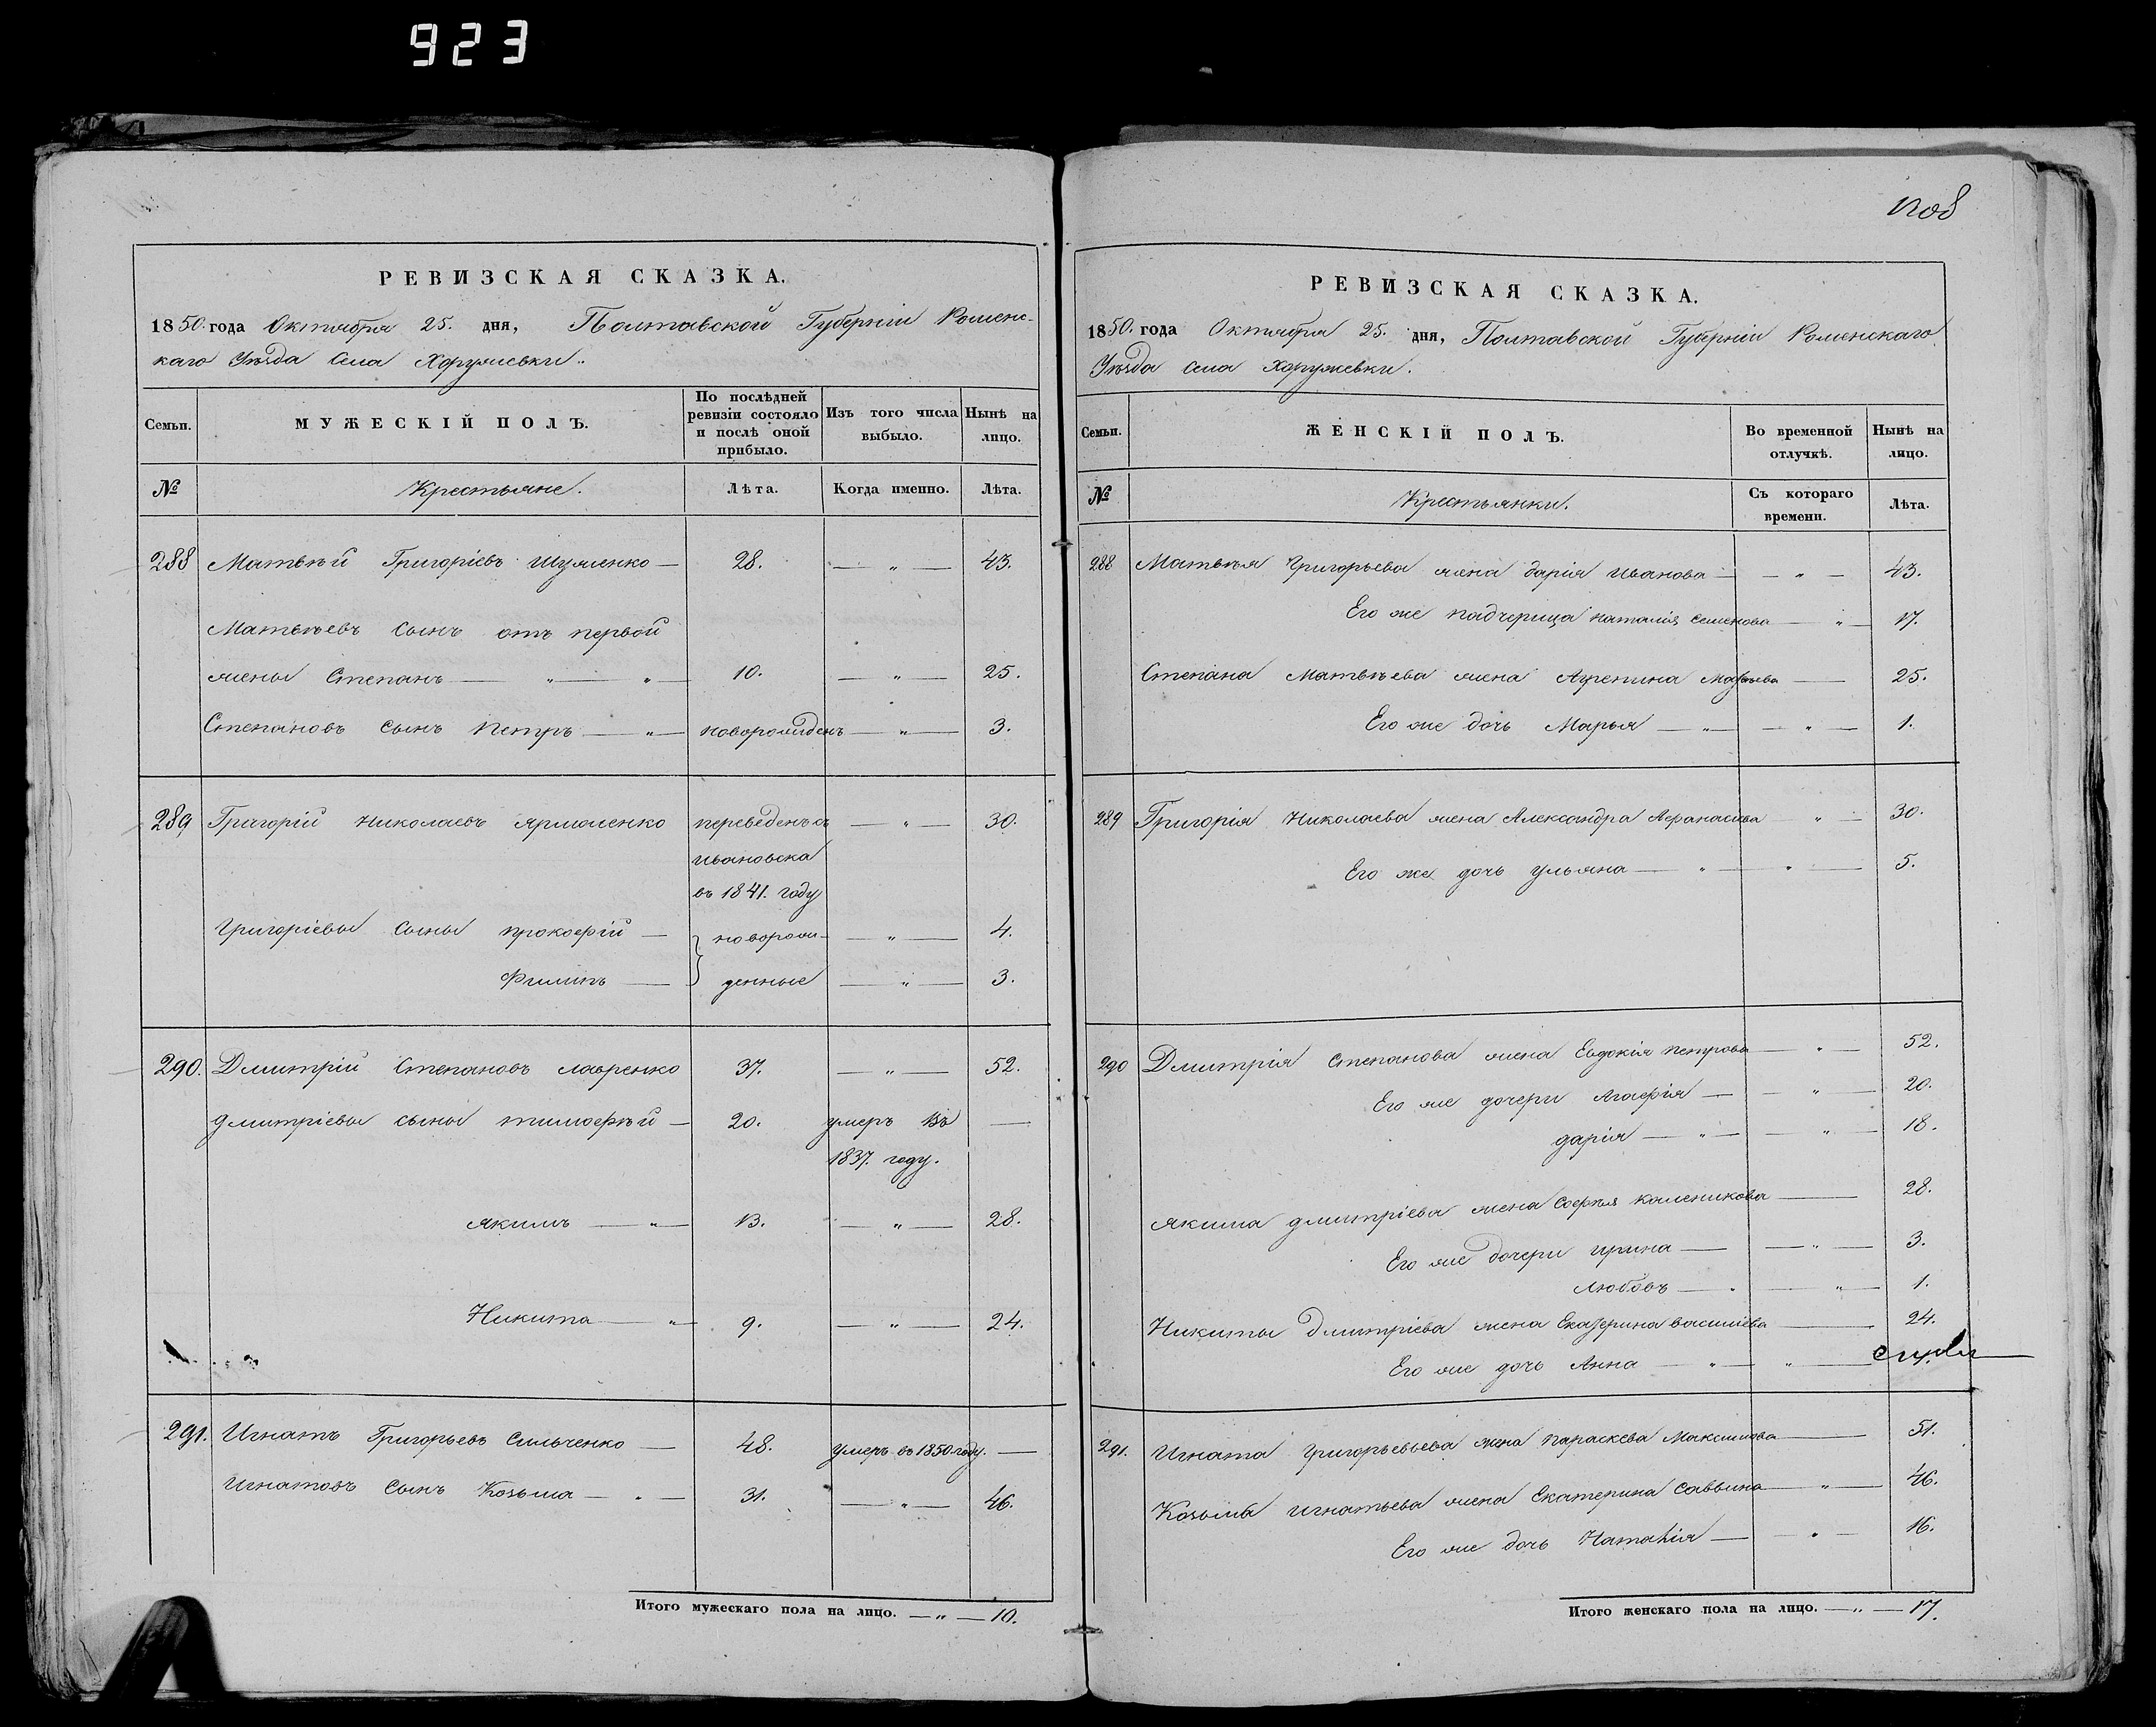 923
РЕВИЗСКАЯ СКАЗКА.
1850. года Октября 25. дня, Полтавской Губерніи Роменс-
каго Уѣзда Села Хоружевки.
Семьи.
МУЖЕСКІЙ ПОЛЪ.
По послѣдней ревизіи состояло и послѣ оной прибыло.
Изъ того числа выбыло.
Нынѣ на лицо.
№ Крестьяне. Лѣта. Когда именно. Лѣта.
288 Матвѣй Григоріевъ Шуменко — 28. — „ — 43.
Матвѣевъ сынъ отъ первой
жены Степанъ — „ — „ — 10. — „ — 25.
Степановъ сынъ Петръ — „ — новорожденъ — „ — 3.
289 Григорій Николаевъ Ярмоленко переведенъ съ — „ — 30.
Ивановска
въ 1841. году
Григоріевы сыны Прокофій — новорож- — „ — 4.
Филипъ — денные — „ — 3.
290. Дмитрій Степановъ Лавренко 37. — „ — 52.
Дмитріевы сыны Тимофѣй — 20. умеръ въ —
1837. году.
Якимъ — „ — 13. — „ — 28.
Никита — „ — 9. — „ — 24.
291. Игнатъ Григорьевъ Сильченко — 48. умеръ въ 1850 году. —
Игнатовъ сынъ Козьма — „ — 31. — „ — 46.
Итого мужескаго пола на лицо. — „ — 10.
1208
РЕВИЗСКАЯ СКАЗКА.
1850. года Октября 25. дня, Полтавской Губерніи Роменскаго
Уѣзда Села Хоружевки.
Семьи.
ЖЕНСКІЙ ПОЛЪ.
Во временной отлучкѣ.
Нынѣ на лицо.
№ Крестьянки. Съ котораго времени. Лѣта.
288 Матвѣя Григорьева жена Дарія Иванова — — „ — 43.
Его же падчерица Наталія Семенова — „ — 17.
Степана Матвѣева жена Агрепина — 25.
Его же дочь Марья — „ — — „ — 1.
289 Григорія Николаева жена Александра Афанасіева — „ — 30.
Его же дочь Ульяна — „ — „ — 5.
290 Дмитрія Степанова жена Евдокія Петрова — „ — 52.
Его же дочери Агафія — — „ — 20.
Дарія — „ — — „ — 18.
Якима Дмитріева жена Софѣя Каленикова — 28.
Его же дочери Ирина — — „ — 3.
Любовь — „ — „ — 1.
Никиты Дмитріева жена Екатерина Василіева — 24.
Его же дочь Анна — „ — „ —
291. Игната Григорьевьева жена Параскева Максимова — 51.
Козьмы Игнатьева жена Екатерина Саввина — „ — 46.
Его же дочь Наталія — — „ — 16.
Итого женскаго пола на лицо. — „ — 17.